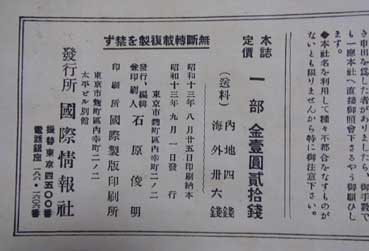 き申出を爲した者がありましたら、御手數で
も一應本社へ直接御照會下さるやう御願ひし
ます。
◆本社名を利用して種々不都合をなすものが
ないとも限りませんから特に御注意下さい。
本誌定價 一部 金壹圓貳拾錢
(送料) 內地四錢 海外卅六錢
無斷轉載複製を禁ず
昭和十三年八月廿五日印刷納本
昭和十三年九月一日發行
東京市麴町區內幸町二ノ二
發行、編輯兼印刷人 石原俊明
印刷所 國際製版印刷所
東京市麴町區內幸町二ノ二
太平ビル別館
發行所 國際情報社
振替東京四五〇〇番